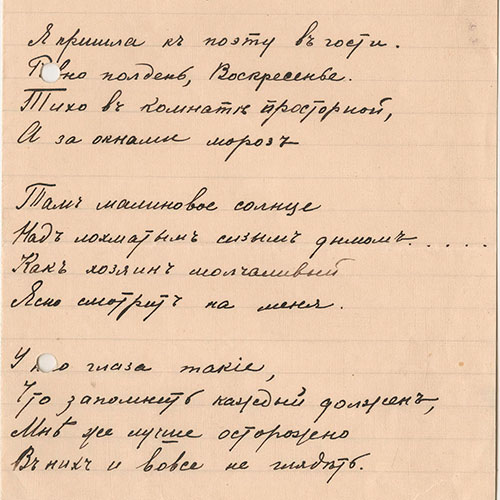 Я пришла къ поэту въ гости.
Ровно полдень, Воскресенье.
Тихо въ комнатѣ просторной,
А за окнами морозъ

Тамъ малиновое солнце
Надъ лохматымъ сизымъ дымомъ.....
Какъ хозяинъ молчаливый
Ясно смотритъ на меня.

У него глаза такіе,
Что запомнить каждый долженъ,
Мнѣ же лучше осторожно
Въ нихъ и вовсе не глядѣть.